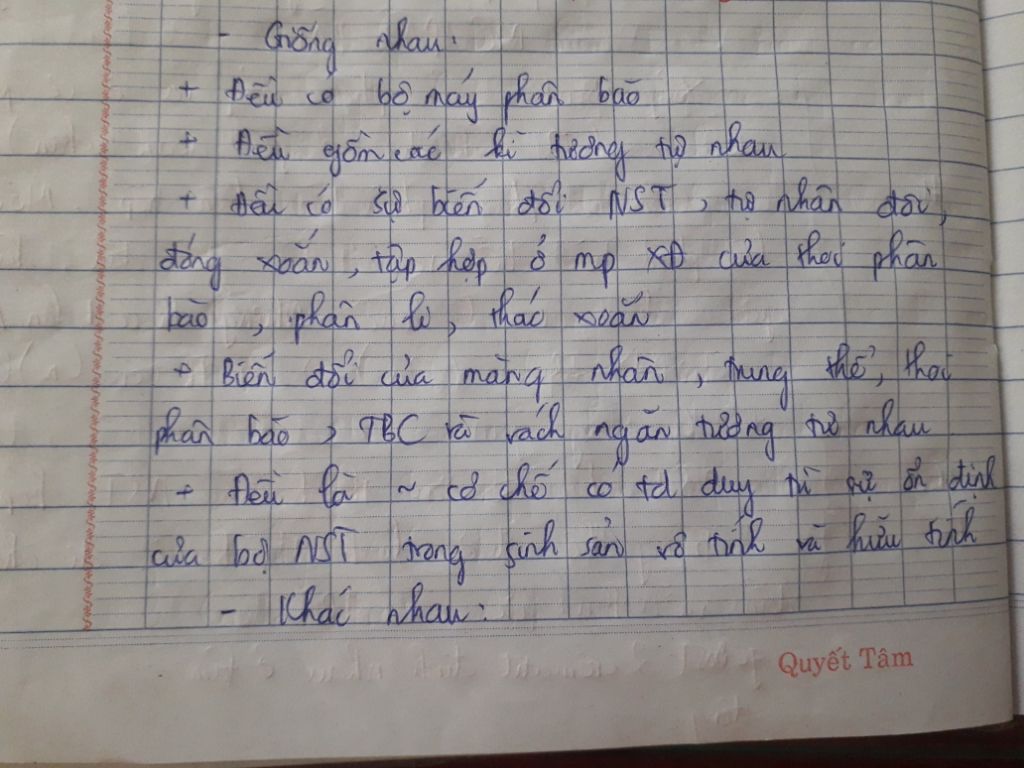 - Giống nhau:
+ Đều có bộ máy phân bào
+ Đều gồm các kì tương tự nhau
+ Đều có sự biến đổi NST, tự nhân đôi,
đóng xoắn, tập hợp ở mp xđ của thoi phân
bào, phân li, tháo xoắn
+ Biến đổi của màng nhân, trung thể, thoi
phân bào, TBC và vách ngăn tương tự nhau
+ Đều là ~ cơ chế có td duy trì sự ổn định
của bộ NST trong sinh sản vô tính và hữu tính
- Khác nhau:
Quyết Tâm